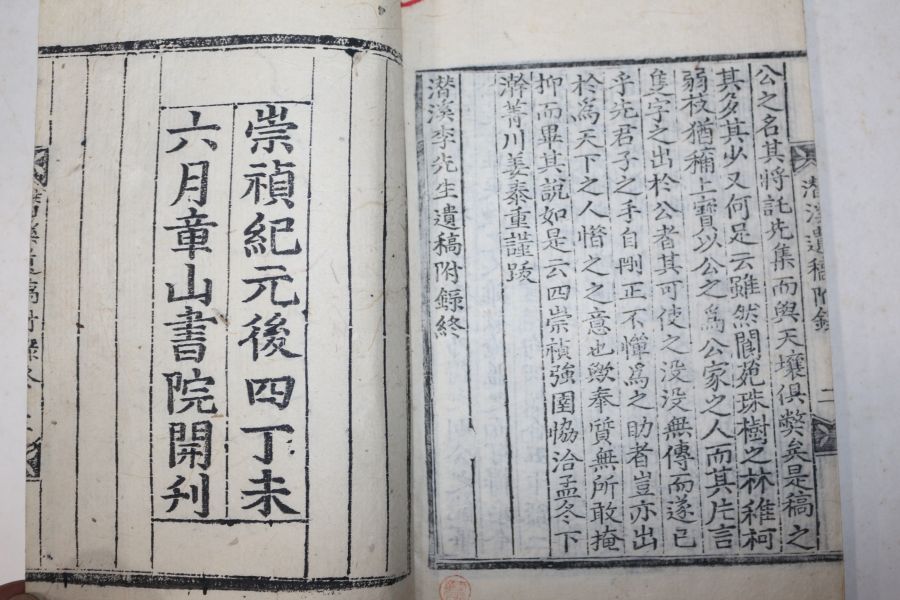 潜溪遺稿附錄 二
公之名其將託先集而與天壤俱弊矣是稿之
其多其少又何足云雖然閬苑珠樹之林稚柯
弱枝猶稱上寶以公之爲公家之人而其片言
隻字之出於公者其可使之沒沒無傳而遂已
乎先君子之手自刪正不憚爲之助者豈亦出
於爲天下之人惜之之意也歟奉質無所敢掩
抑而畢其說如是云四崇禎強圉恊洽孟冬下
澣菁川姜泰重謹跋
潜溪李先生遺稿附錄終
崇禎紀元後四丁未
六月章山書院開刊